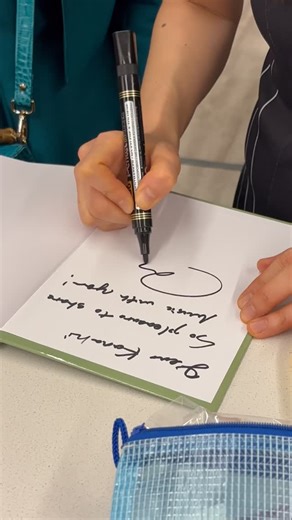 Dear Konohi
So pleasure to share
Music with you!